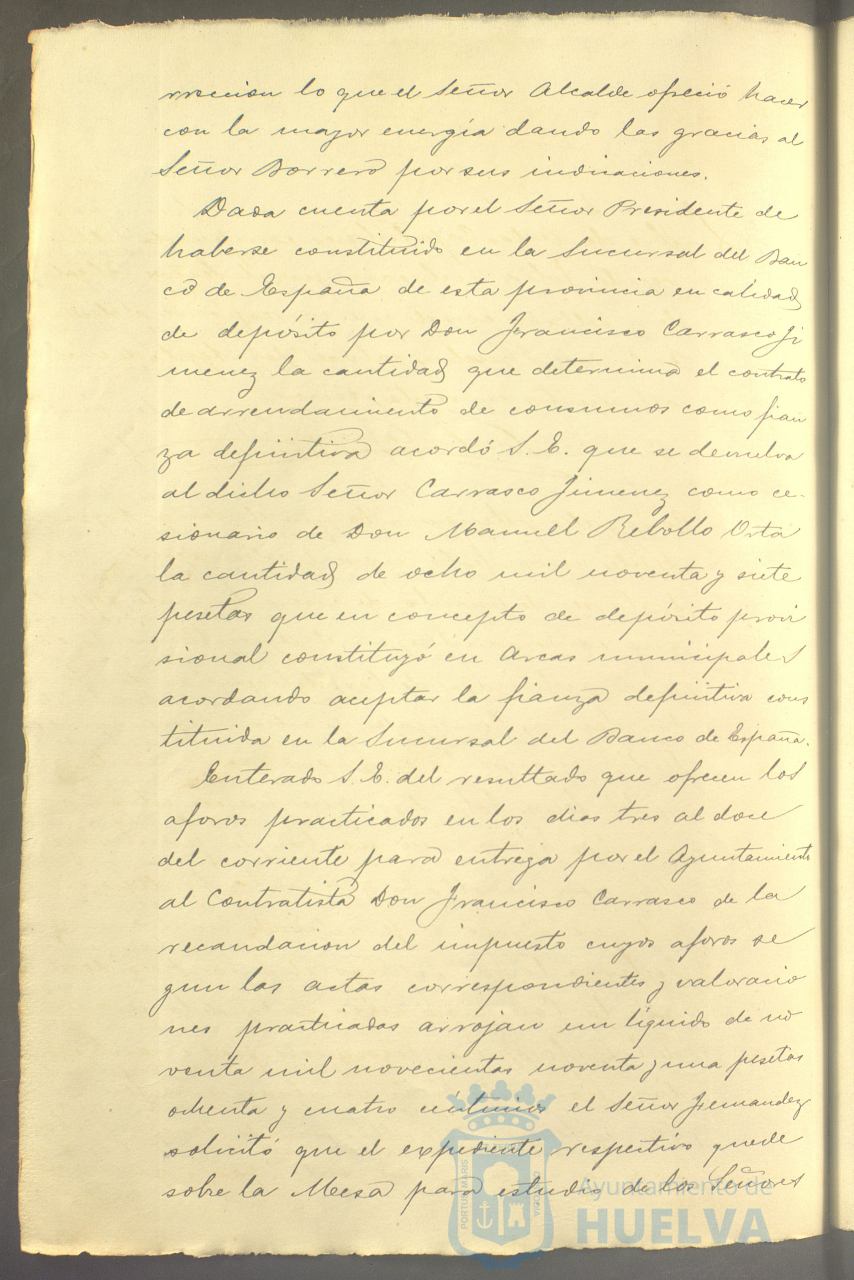 rreccion lo que el Señor Alcalde ofreció hacer
con la mayor energía dando las gracias al
Señor Borrero por sus indicaciones.
Dada cuenta por el Señor Presidente de
haberse constituido en la Sucursal del Ban
co de España de esta provincia en calidad
de depósito por Don Francisco Carrasco Ji
menez la cantidad que determina el contrato
de arrendamiento de consumos como fian
za definitiva acordó S. E. que se devuelva
al dicho Señor Carrasco Jimenez como ce-
sionario de Don Manuel Rebollo Orta
la cantidad de ocho mil noventa y siete
pesetas que en concepto de depósito provi
sional constituyó en arcas municipales
acordando aceptar la fianza definitiva cons
tituida en la Sucursal del Banco de España.
Enterado S. E. del resultado que ofrecen los
aforos practicados en los dias tres al doce
del corriente para entrega por el Ayuntamiento
al Contratista Don Francisco Carrasco de la
recaudacion del impuesto cuyos aforos se
gun las actas correspondientes y valoracio
nes practicadas arrojan un líquido de no
venta mil novecientas noventa y una pesetas
ochenta y cuatro céntimos el Señor Fernandez
solicitó que el expediente respectivo quede
sobre la Mesa para estudio de los Señores
PORTUS MARIS
Ayuntamiento de
HUELVA